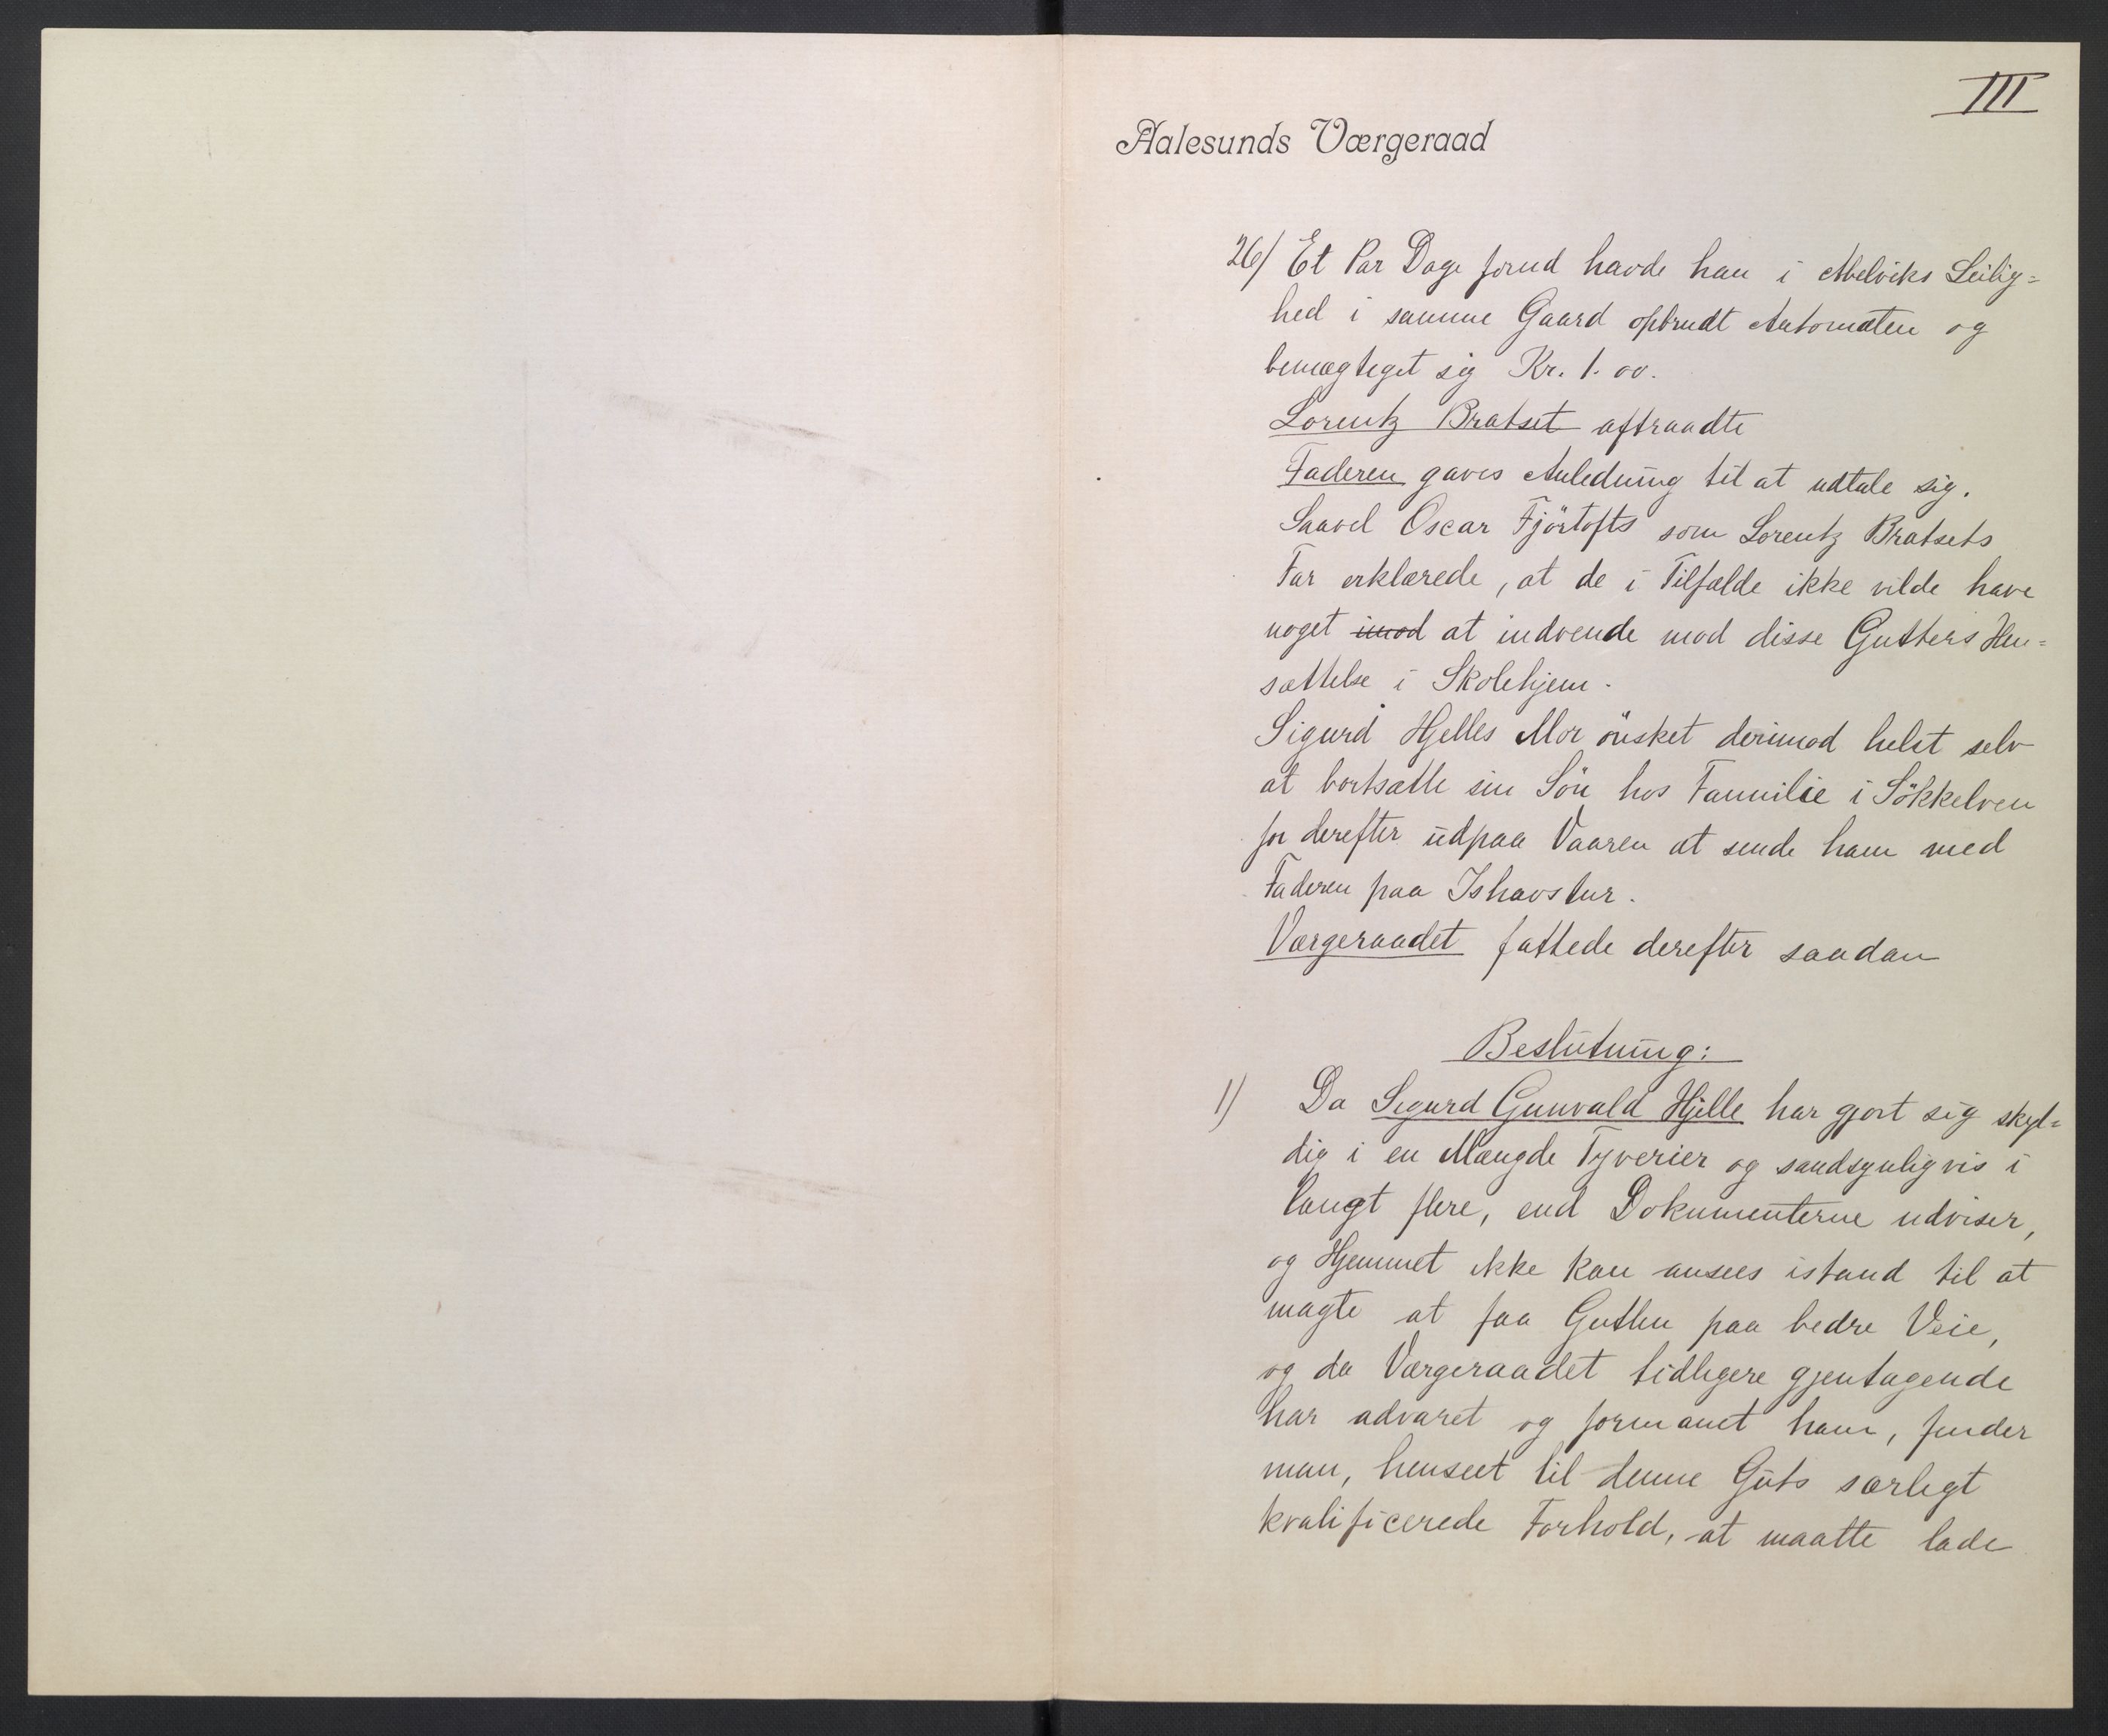 III
Aalesunds Værgeraad
26) Et Par Dage forud havde han i Melviks Leilig=
hed i samme Gaard opbrudt Automaten og
bemægtiget sig Kr. 1.00.
Lorentz Bratset aftraadte
Faderen gaves Anledning til at udtale sig.
Saavel Oscar Fjörtofts som Lorentz Bratsets
Far erklærede, at de i Tilfælde ikke vilde have
noget imod at indvende mod disse Gutters Hen=
sættelse i Skolehjem.
Sigurd Hjelles Mor önsket derimod helst selv
at bortsætte sin Sön hos Familie i Sökkelven
for derefter udpaa Vaaren at sende ham med
Faderen paa Ishavstur.
Værgeraadet fattede derefter saadan
Beslutning:
1) Da Sigurd Gunvald Hjelle har gjort sig skyl=
dig i en Mængde Tyverier og sandsynligvis i
langt flere, end Dokumenterne udviser,
og Hjemmet ikke kan ansees istand til at
magte at faa Gutten paa bedre Veie,
og da Værgeraadet tidligere gjentagende
har advaret og formanet ham, finder
man, henseet til denne Guts særligt
kvalificerede Forhold, at maatte lade